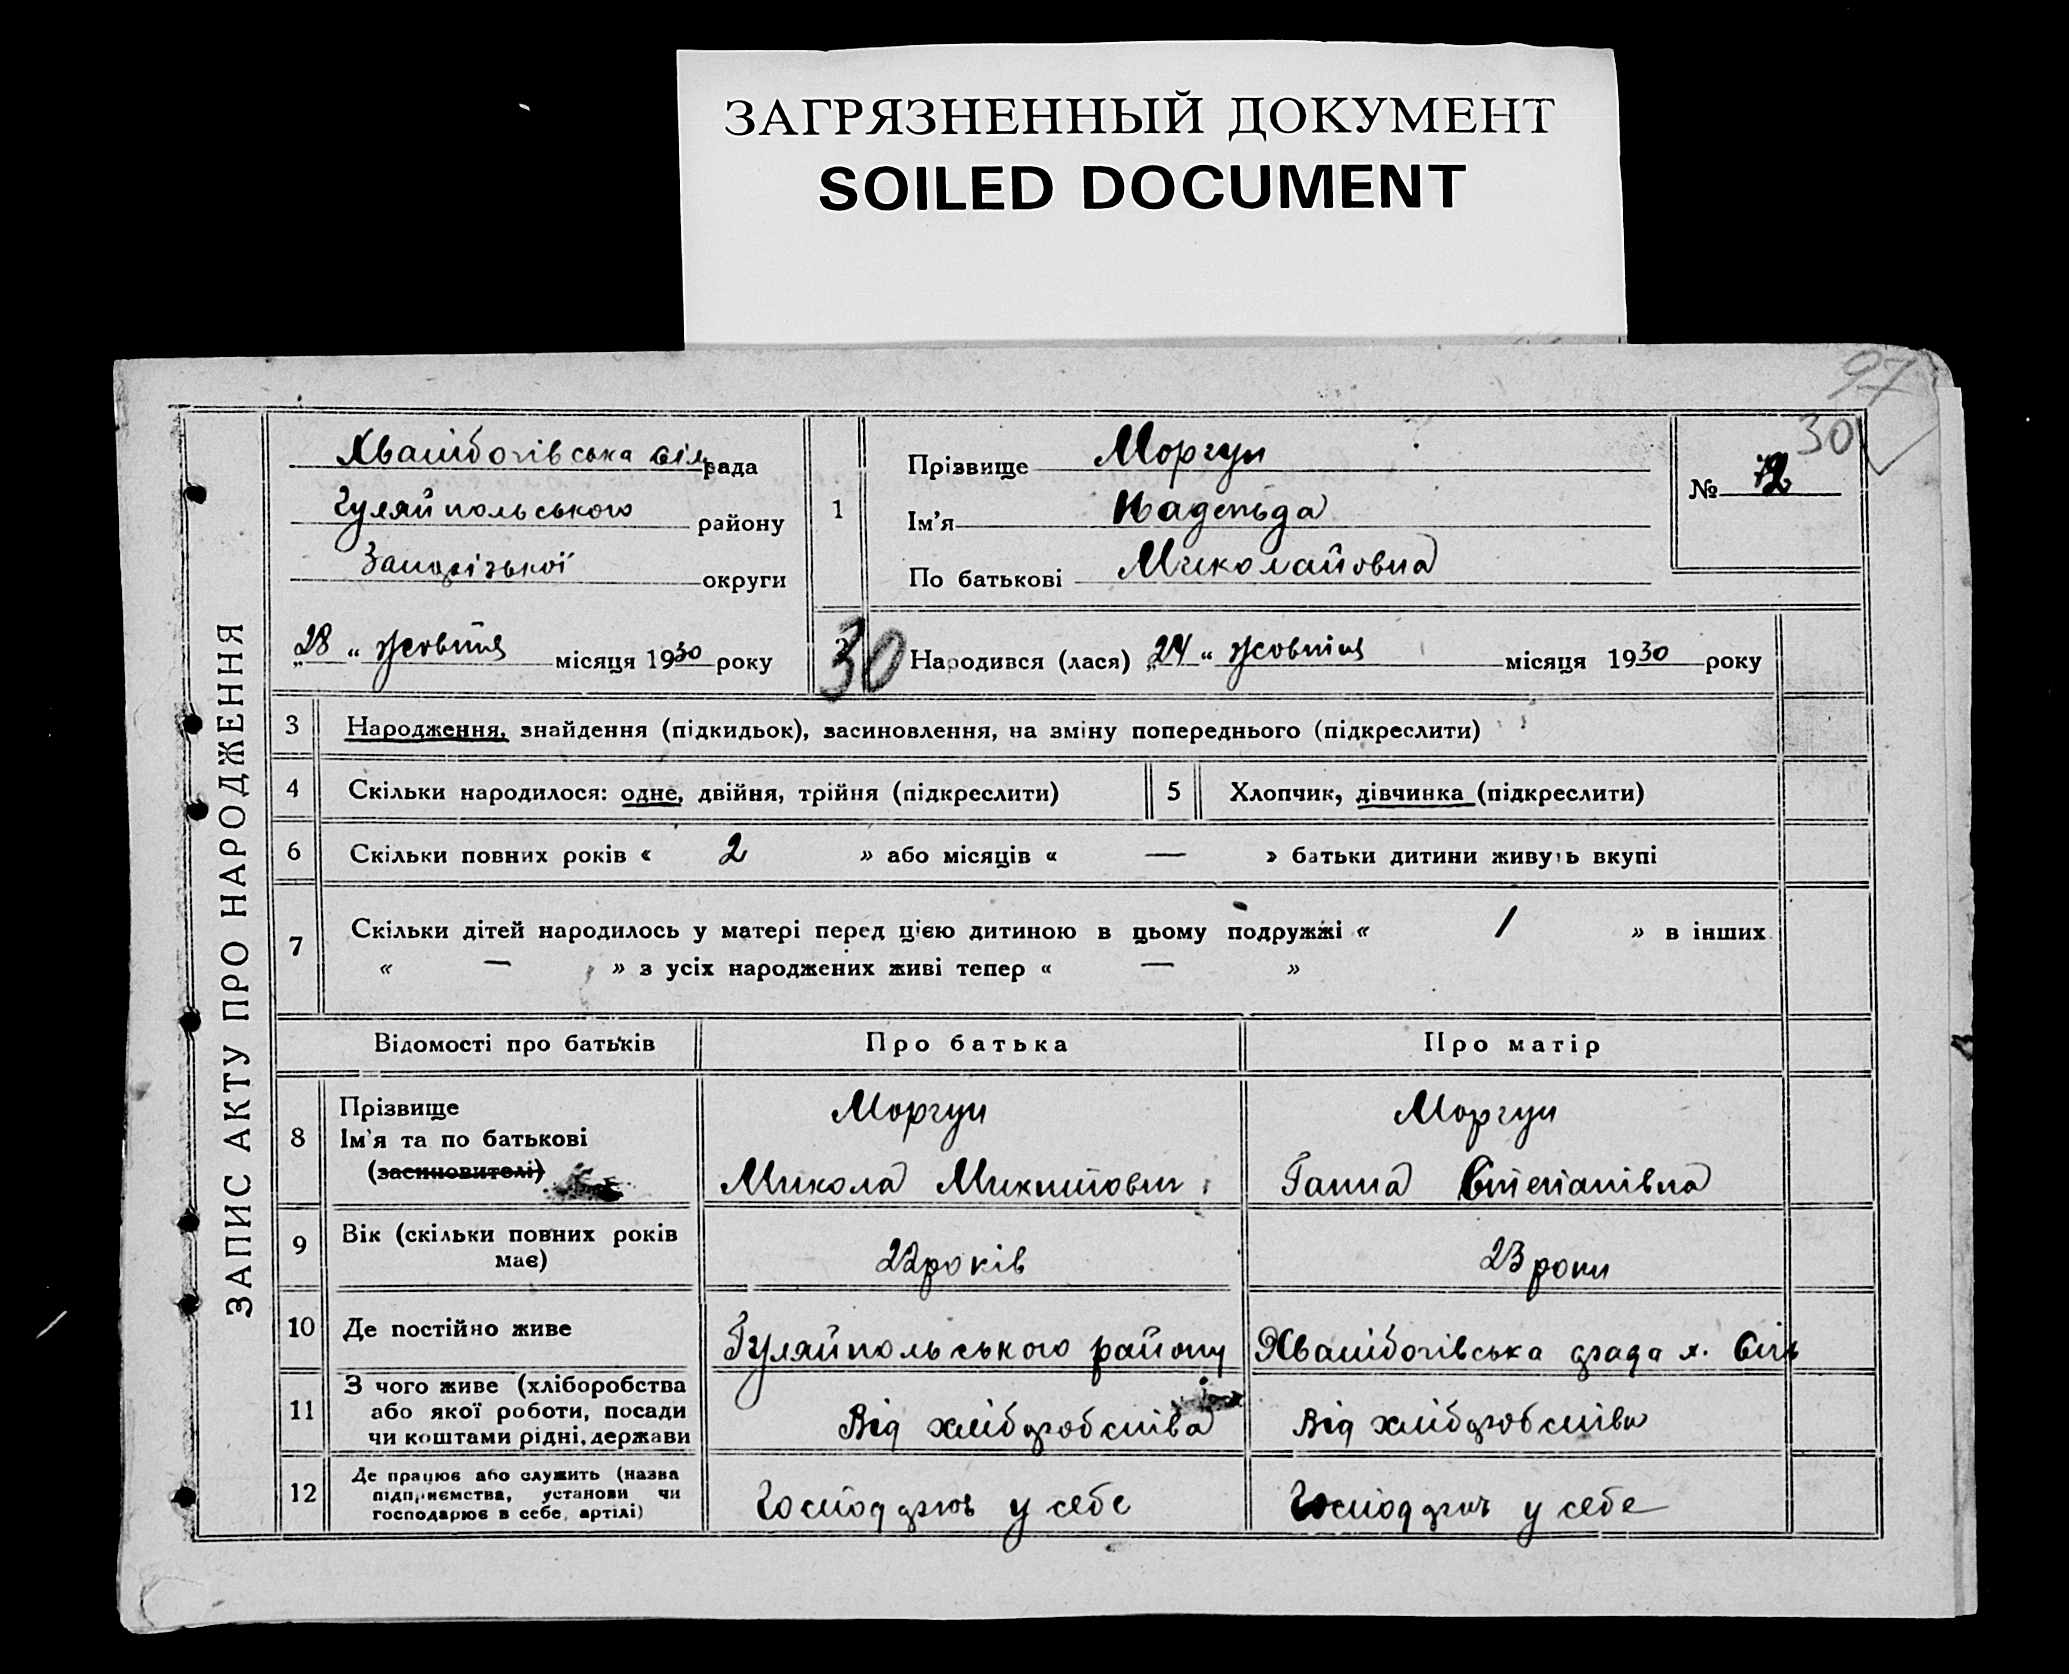 ЗАГРЯЗНЕННЫЙ ДОКУМЕНТ
SOILED DOCUMENT
97
30
ЗАПИС АКТУ ПРО НАРОДЖЕННЯ
Хвалібогівська сіл рада
Гуляйпольського району
Запорізької округи
„28“ жовтня місяця 1930 року
1
Прізвище Моргун
Ім'я Надежда
По батькові Миколайовна
№
30
Народився (лася) „24“ жовтня місяця 1930 року
3 Народження, знайдення (підкидьок), засиновлення, на зміну попереднього (підкреслити)
4 Скільки народилося: одне, двійня, трійня (підкреслити) 5 Хлопчик, дівчинка (підкреслити)
6 Скільки повних років « 2 » або місяців « — » батьки дитини живуть вкупі
7 Скільки дітей народилось у матері перед цією дитиною в цьому подружжі « 1 » в інших
« — » з усіх народжених живі тепер « — »
Відомості про батьків Про батька Про матір
8 Прізвище Моргун Моргун
Ім'я та по батькові
(засиновителі) Микола Микитович Ганна Степанівна
9 Вік (скільки повних років має) 22 років 23 роки
10 Де постійно живе Гуляйпольського району Хвалібогівська рада
11 З чого живе (хліборобства
або якої роботи, посади
чи коштами рідні, держави Від хліборобства Від хліборобства
12 Де працює або служить (назва
підприємства, установи чи
господарює в себе, артілі) Господарює у себе Господарює у себе